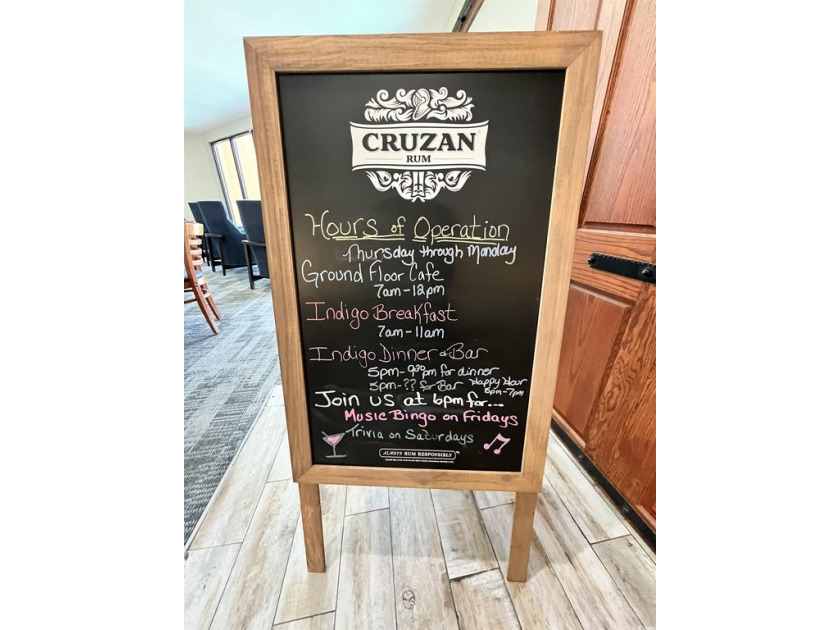 CRUZAN
RUM
Hours of Operation
Thursday through Monday
Ground Floor Cafe
7am-12pm
Indigo Breakfast
7am-11am
Indigo Dinner & Bar
5pm-9:30pm for dinner
5pm-?? for Bar Happy Hour
5pm-7pm
Join us at 6pm for...
Music Bingo on Fridays
Trivia on Saturdays
ALWAYS RUM RESPONSIBLY